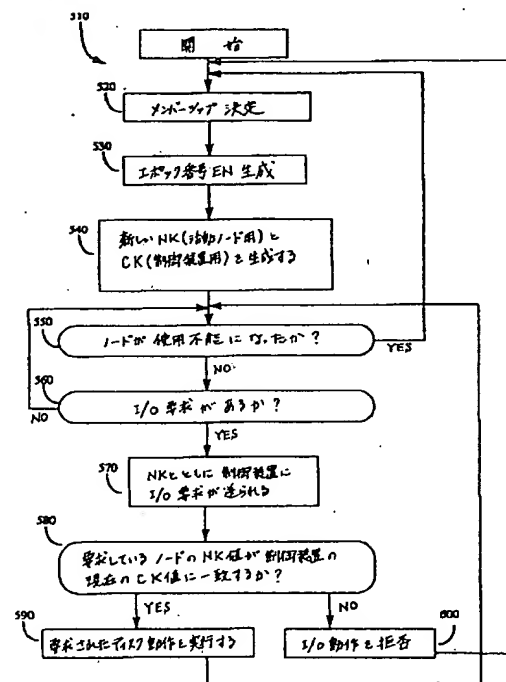 510
開 始
520
メンバーシップ 決定
530
エポック番号 EN 生成
540
新しい NK (活動ノード用) と
CK (制御装置用) を生成する
550
ノードが 使用不能に なったか?
YES
NO
560
I/O 要求が あるか?
NO
YES
570
NKとともに 制御装置に
I/O 要求が送られる
580
要求している ノードの NK値が 制御装置の
現在の CK値に一致するか?
YES
NO
590
要求されたディスク動作を実行する
600
I/O 動作を拒否